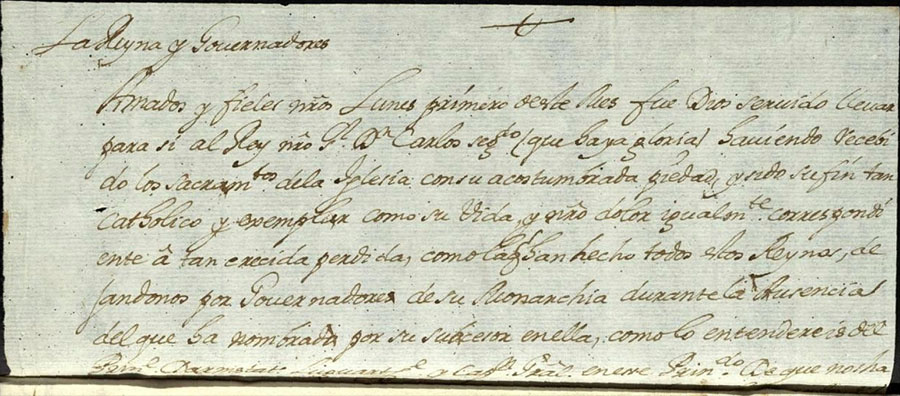 La Reyna y Governadores
Amados y fieles nros Lunes primero deste Mes fue Dios servido llevar
para si al Rey nro Sr. Dn Carlos segdo (que haya gloria) haviendo recebi
do los sacramtos dela Iglesia consu acostumbrada piedad, y sido su fin tan
Catholico y exemplar como su vida, y nro dolor igualmte correspondi
ente â tan crecida perdida, como la q han hecho todos estos Reynos, de
jandonos por Governadores de su Monarchia durante la Ausencia
del que ha nombrado por su subcesor en ella, como lo entendereis del
Darmstat Lugartte y Cappn Gral en ese Prindo De que nos ha